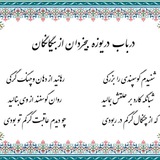 در باب دریوزه بیخردان از بیگانگان
شنیدم گوسپندی را بزرگی
رهانید از دهان و چنگ گرگی
شبانگه کارد بر حلقش بمالید
روان گوسفند از وی بنالید
که از چنگال گرگم در ربودی
چو دیدم عاقبت گرگم تو بودی